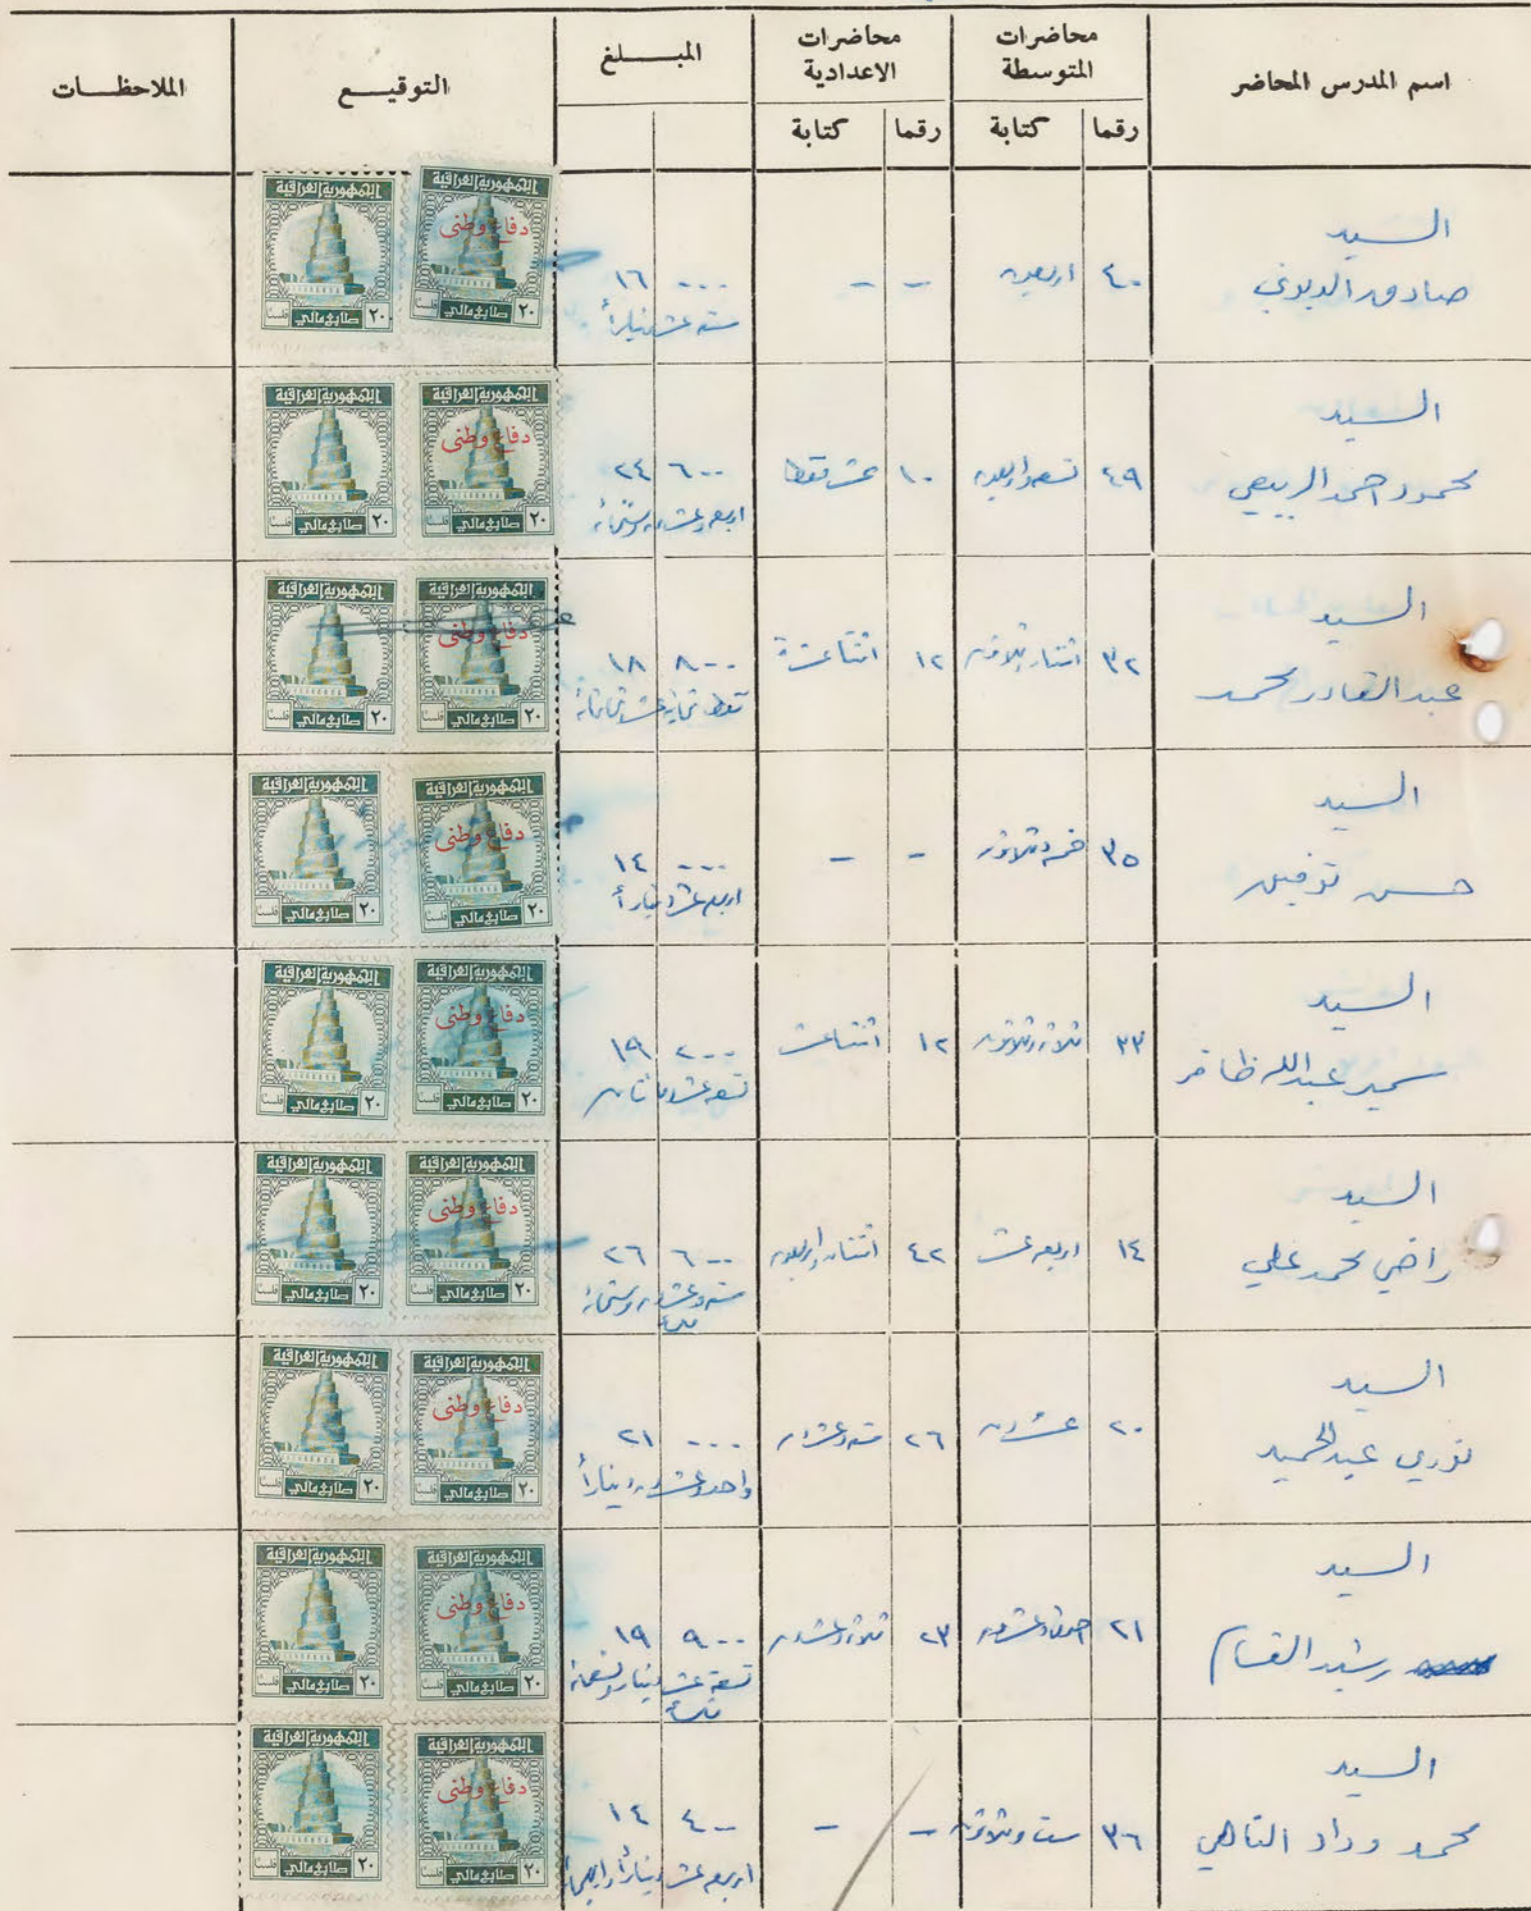 اسم المدرس المحاضر
محاضرات المتوسطة
رقما كتابة
محاضرات الاعدادية
رقما كتابة
المبـــلغ
التوقيـــع
الملاحظـــات
السيد
صادق
٤٠ اربعون - - ٠٠٠ ١٦
ستة عشر ديناراً
الجمهورية العراقية
دفاع وطني
٢٠ طابع مالي فلسا
الجمهورية العراقية
٢٠ طابع مالي فلسا
السيد
محمود احمد الربيعي
٤٩ تسعة واربعون ١٠ عشر فقط ٦٠٠ ٢٤
اربعة وعشرون وستمائة
الجمهورية العراقية
دفاع وطني
٢٠ طابع مالي فلسا
الجمهورية العراقية
٢٠ طابع مالي فلسا
السيد
عبد القادر محمد
٣٢ اثنتان وثلاثون ١٢ اثنتا عشرة ٨٠٠ ١٨
فقط ثمانية عشر وثمانمائة
الجمهورية العراقية
دفاع وطني
٢٠ طابع مالي فلسا
الجمهورية العراقية
٢٠ طابع مالي فلسا
السيد
حسن توفيق
٣٥ خمسة وثلاثون - - ٠٠٠ ١٤
اربعة عشر ديناراً
الجمهورية العراقية
دفاع وطني
٢٠ طابع مالي فلسا
الجمهورية العراقية
٢٠ طابع مالي فلسا
السيد
سمير عبدالله ظافر
٣٣ ثلاثة وثلاثون ١٢ اثنتا عشر ٢٠٠ ١٩
تسعة عشر ومائتان
الجمهورية العراقية
دفاع وطني
٢٠ طابع مالي فلسا
الجمهورية العراقية
٢٠ طابع مالي فلسا
السيد
راضي محمد علي
١٤ اربعة عشر ٤٢ اثنتان واربعون ٦٠٠ ٢٦
ستة وعشرون وستمائة
فلساً
الجمهورية العراقية
دفاع وطني
٢٠ طابع مالي فلسا
الجمهورية العراقية
٢٠ طابع مالي فلسا
السيد
نوري عبدالحميد
٢٠ عشرون ٢٦ ستة وعشرون ٠٠٠ ٢١
واحد وعشرون ديناراً
الجمهورية العراقية
دفاع وطني
٢٠ طابع مالي فلسا
الجمهورية العراقية
٢٠ طابع مالي فلسا
السيد
رشيد القسام
٢١ احدى وعشرون ٢٣ ثلاثة وعشرون ٩٠٠ ١٩
تسعة عشر دينار وتسعمائة
فلساً
الجمهورية العراقية
دفاع وطني
٢٠ طابع مالي فلسا
الجمهورية العراقية
٢٠ طابع مالي فلسا
السيد
محمد وداد
٣٦ ست وثلاثون - - ٤٠٠ ١٤
اربعة عشر ديناراً واربعمائة
الجمهورية العراقية
دفاع وطني
٢٠ طابع مالي فلسا
الجمهورية العراقية
٢٠ طابع مالي فلسا